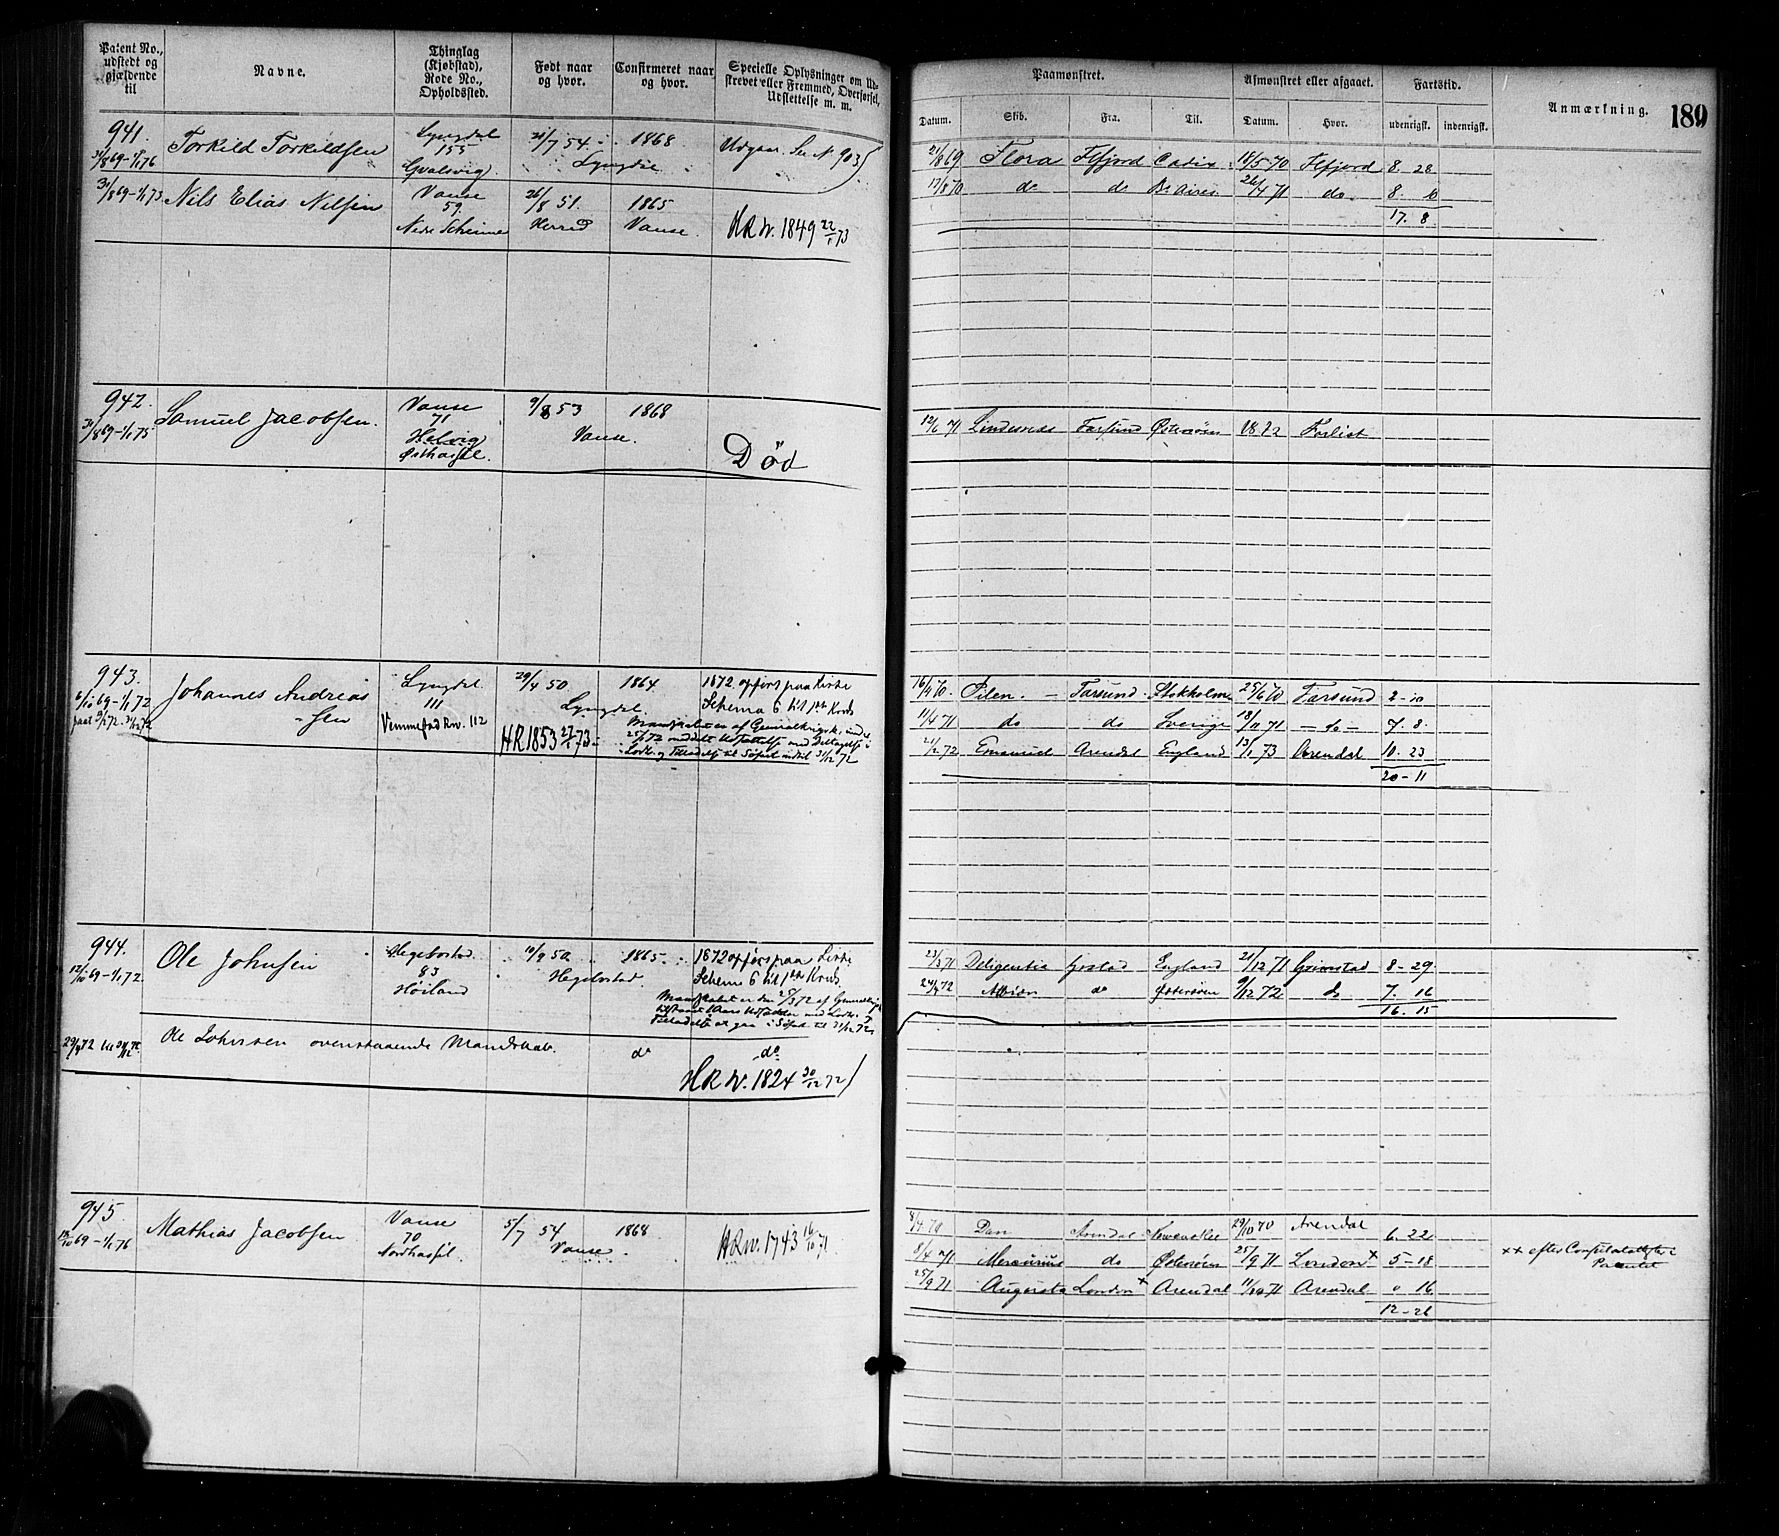 Patent No., udstedt og gjældende til
Navne.
Thinglag (Kjøbstad), Rode No., Opholdssted.
Født naar og hvor.
Confirmeret naar og hvor.
Specielle Oplysninger om Udskrevet eller Fremmed, Overførsel, Udslettelse m. m.
Paamønstret.
Afmønstret eller afgaaet.
Fartstid.
Anmærkning.
189
Datum.
Skib.
Fra.
Til.
Datum.
Hvor.
udenrigsk.
indenrigsk.
941.
31/8 69 - 1/1 76
Torkild Torkildsen
Lyngdal
155
Gvalsvig
21/7 54.
1868
Lyngdal
Udgaar. Se N. 903
31/8 69 - 1/1 73
Nils Elias Nilsen
Vanse
59.
Nedre
26/8 51.
Herred
1865
Vanse
HR N. 1849 22/1 73
21/8 69 Flora Flfjord Cadix 18/5 70 Flfjord 8 28
13/8 70 do do Bs Aires 26/4 71 do. 8. 10
17. 8
942.
31/8 69 - 1/1 75
Samuel Jacobsen.
Vanse
71
Helvig
Østhassel.
9/8 53
1868
Vanse.
Død
12/6 71 Lindesnæs Farsund Østersøen 18 72 Forlist
943.
6/10 69 - 1/1 72
Johannes Andreas
sen
Lyngdal
111
Vemmestad Rw. 112
29/4 50
1864
Lyngdal
HR 1853 27/1 73
1872 opført paa Liste
Schema 6 til 1ste Kreds
16/4 70 Pilen. - Farsund. Stokholm 25/6 70 Farsund 2 - 10
11/4 71 do do Sverige 18/11 71 - do - 7. 8.
21/2 72 Emanuel Arendal England 13/1 73 Arendal 10. 23
20 - 11
944.
12/10 69 - 1/1 72
Ole Johnsen
Hegebostad
83
Høiland
10/9 50
1865
Hegebostad.
1872 opført paa Liste
Schema 6 til 1ste Kreds
Ole Johnsen ovenstaaende Mandskab.
do
do
HR N. 1824 30/12 72
23/3 71 Deligentia England 21/12 71 Grimstad 8 - 29.
24/4 72 Albion do Østersøen 9/12 72 do 7. 16
16. 15
945
12/10 69 - 1/1 76
Mathias Jacobsen
Vanse
70
Nordhassel.
5/7 54
1868
Vanse
HR N. 1743 16/10 71
8/4 70 Dan Arendal 29/10 70 Arendal 6. 22
8/4 71 Mercurius do Østersøen 25/9 71 London + 5 - 18
25/9 71 Augusta London + Arendal 11/10 71 Arendal 0 16
12 - 26
++ efter Consulatattester i
Patentet